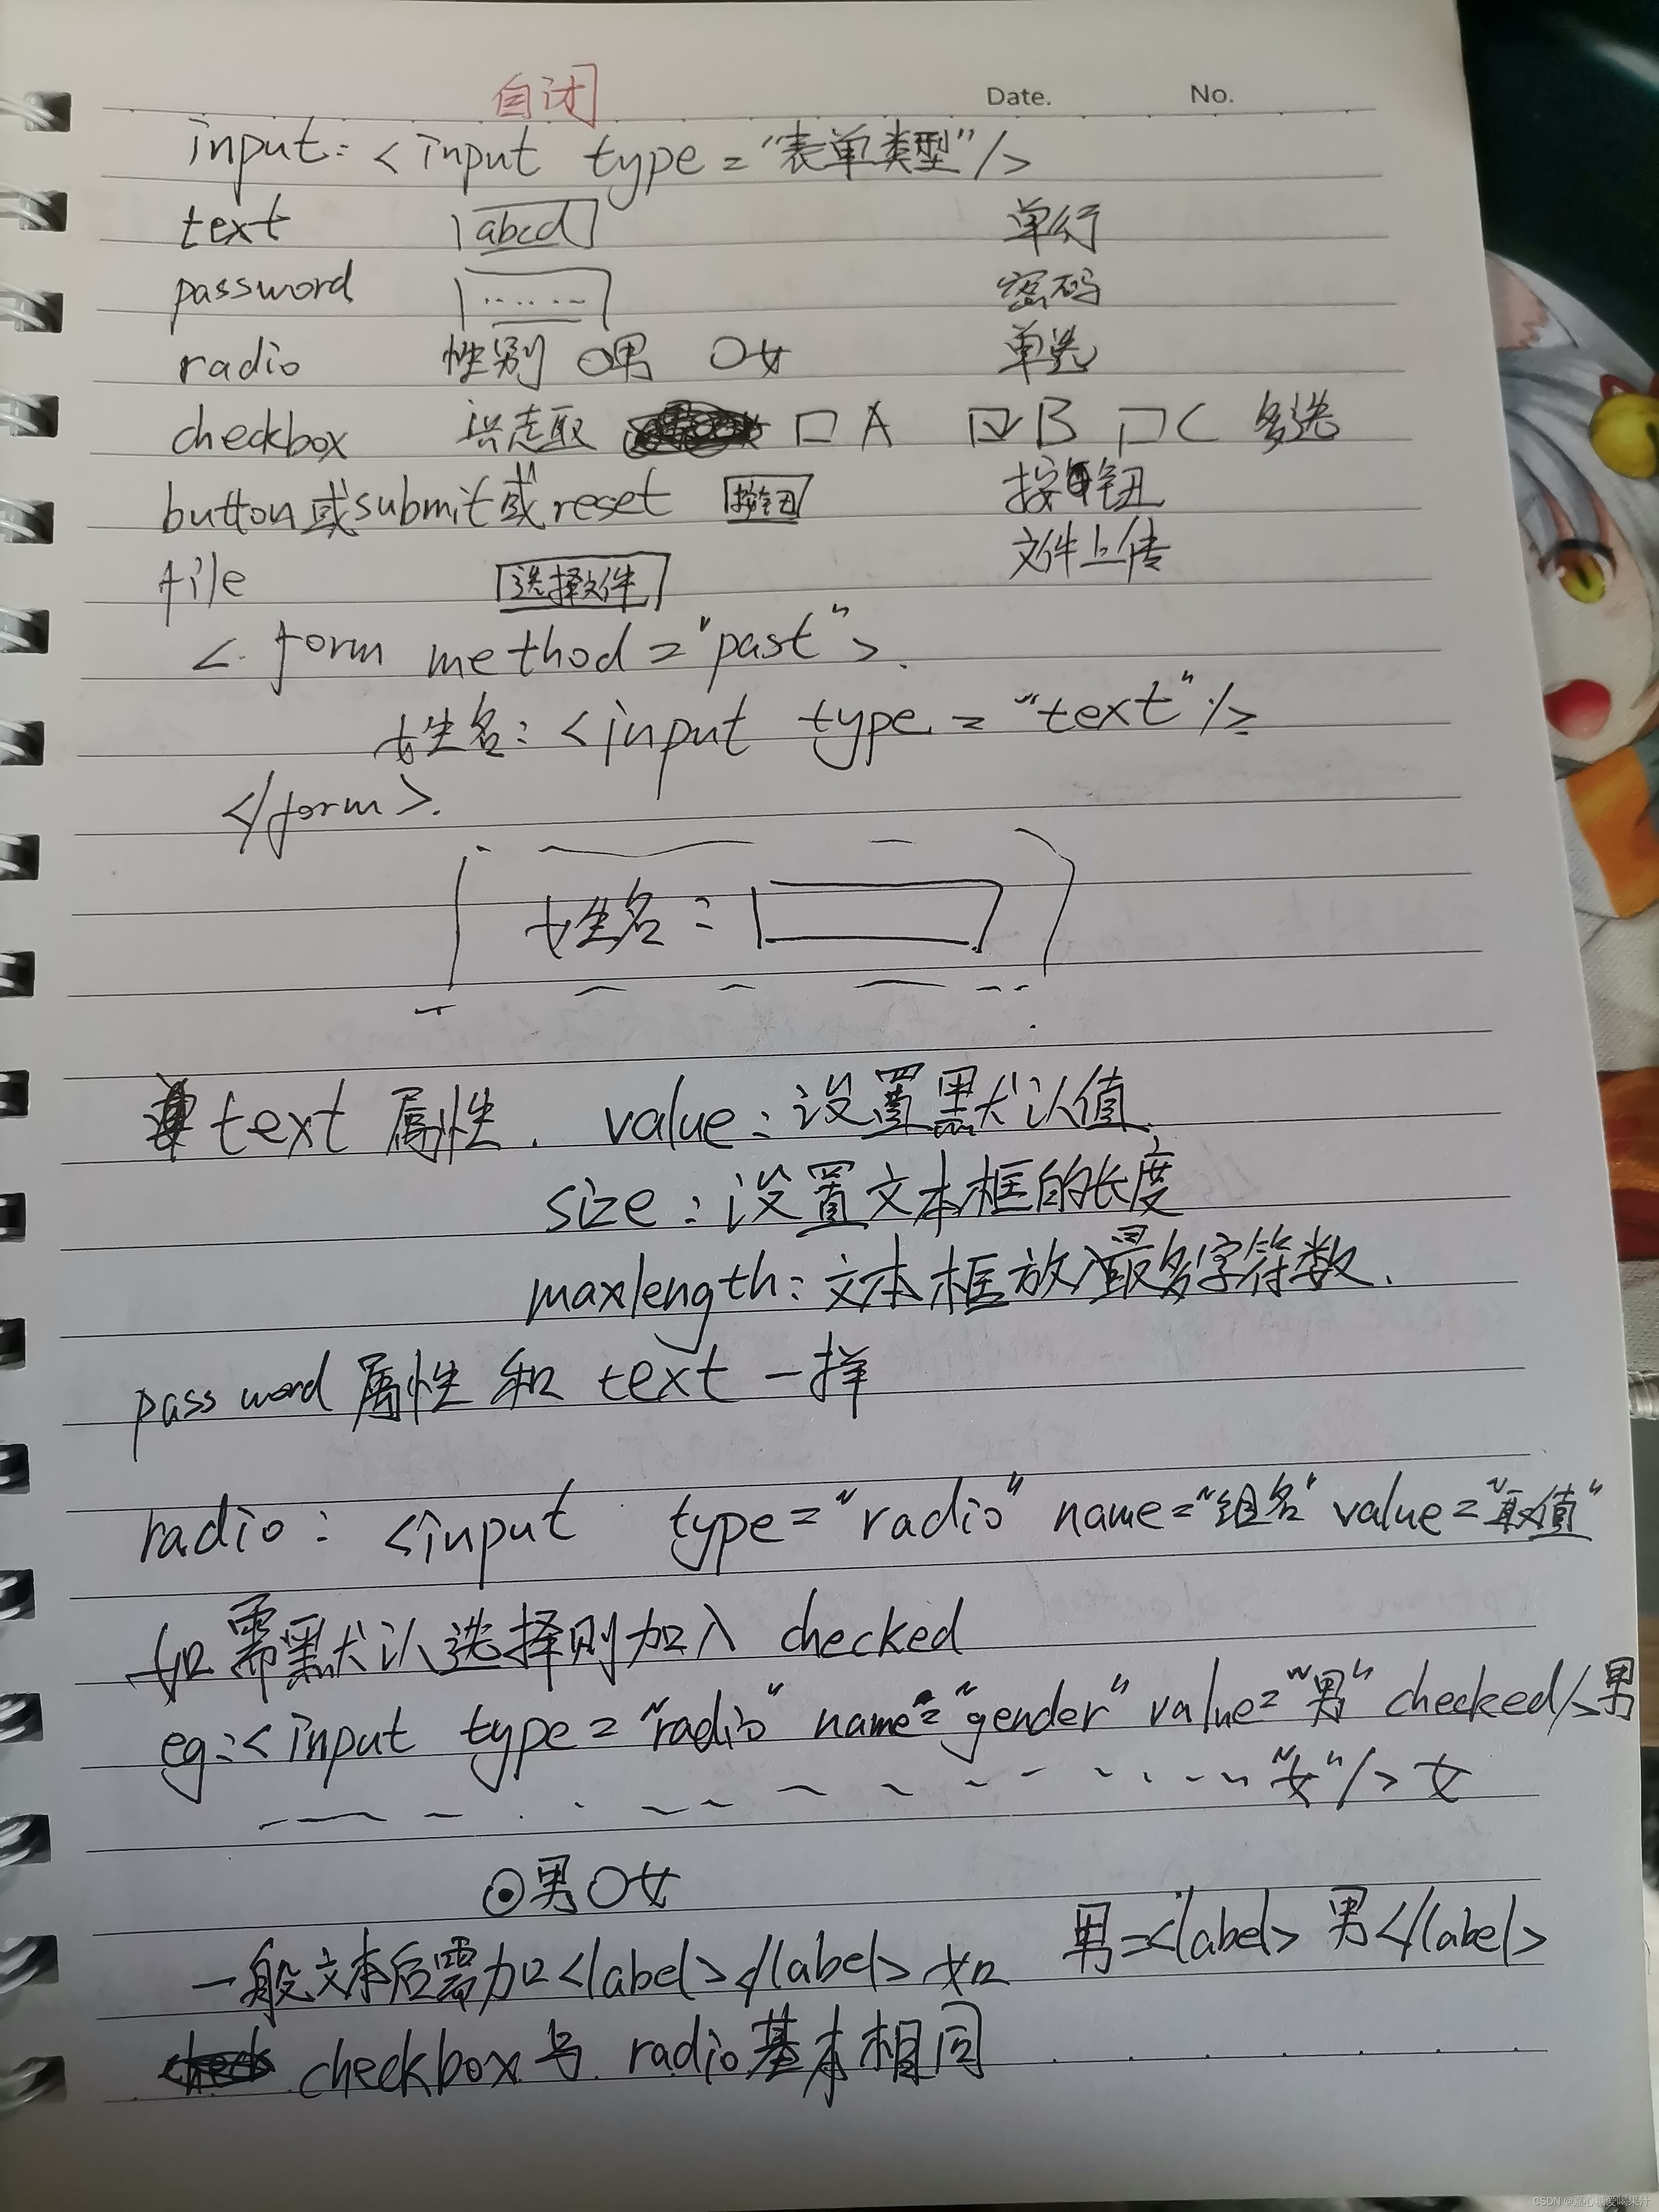 自闭
Date. No.
input: <input type="表单类型"/>
text abcd 单行
password ...... 密码
radio 性别 ○男 ○女 单选
checkbox 兴趣 □A ☑B □C 多选
button或submit或reset 按钮 按钮
file 选择文件 文件上传
<form method="past">.
姓名:<input type="text"/>
</form>.
姓名:
text 属性. value:设置默认值.
size:设置文本框的长度
maxlength:文本框放入最多字符数.
password 属性 和 text 一样
radio: <input type="radio" name="组名" value="取值"
如需默认选择则加入 checked
eg:<input type="radio" name="gender" value="男" checked/>男
"女"/>女
⊙男○女
一般文本后需加<label></label> 如 男=<label>男</label>
checkbox与 radio基本相同